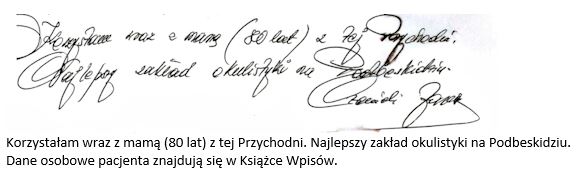 Korzystam wraz z mamą (80 lat) z tej Przychodni.
Najlepszy zakład okulistyki na Podbeskidziu.
Korzystałam wraz z mamą (80 lat) z tej Przychodni. Najlepszy zakład okulistyki na Podbeskidziu.
Dane osobowe pacjenta znajdują się w Książce Wpisów.